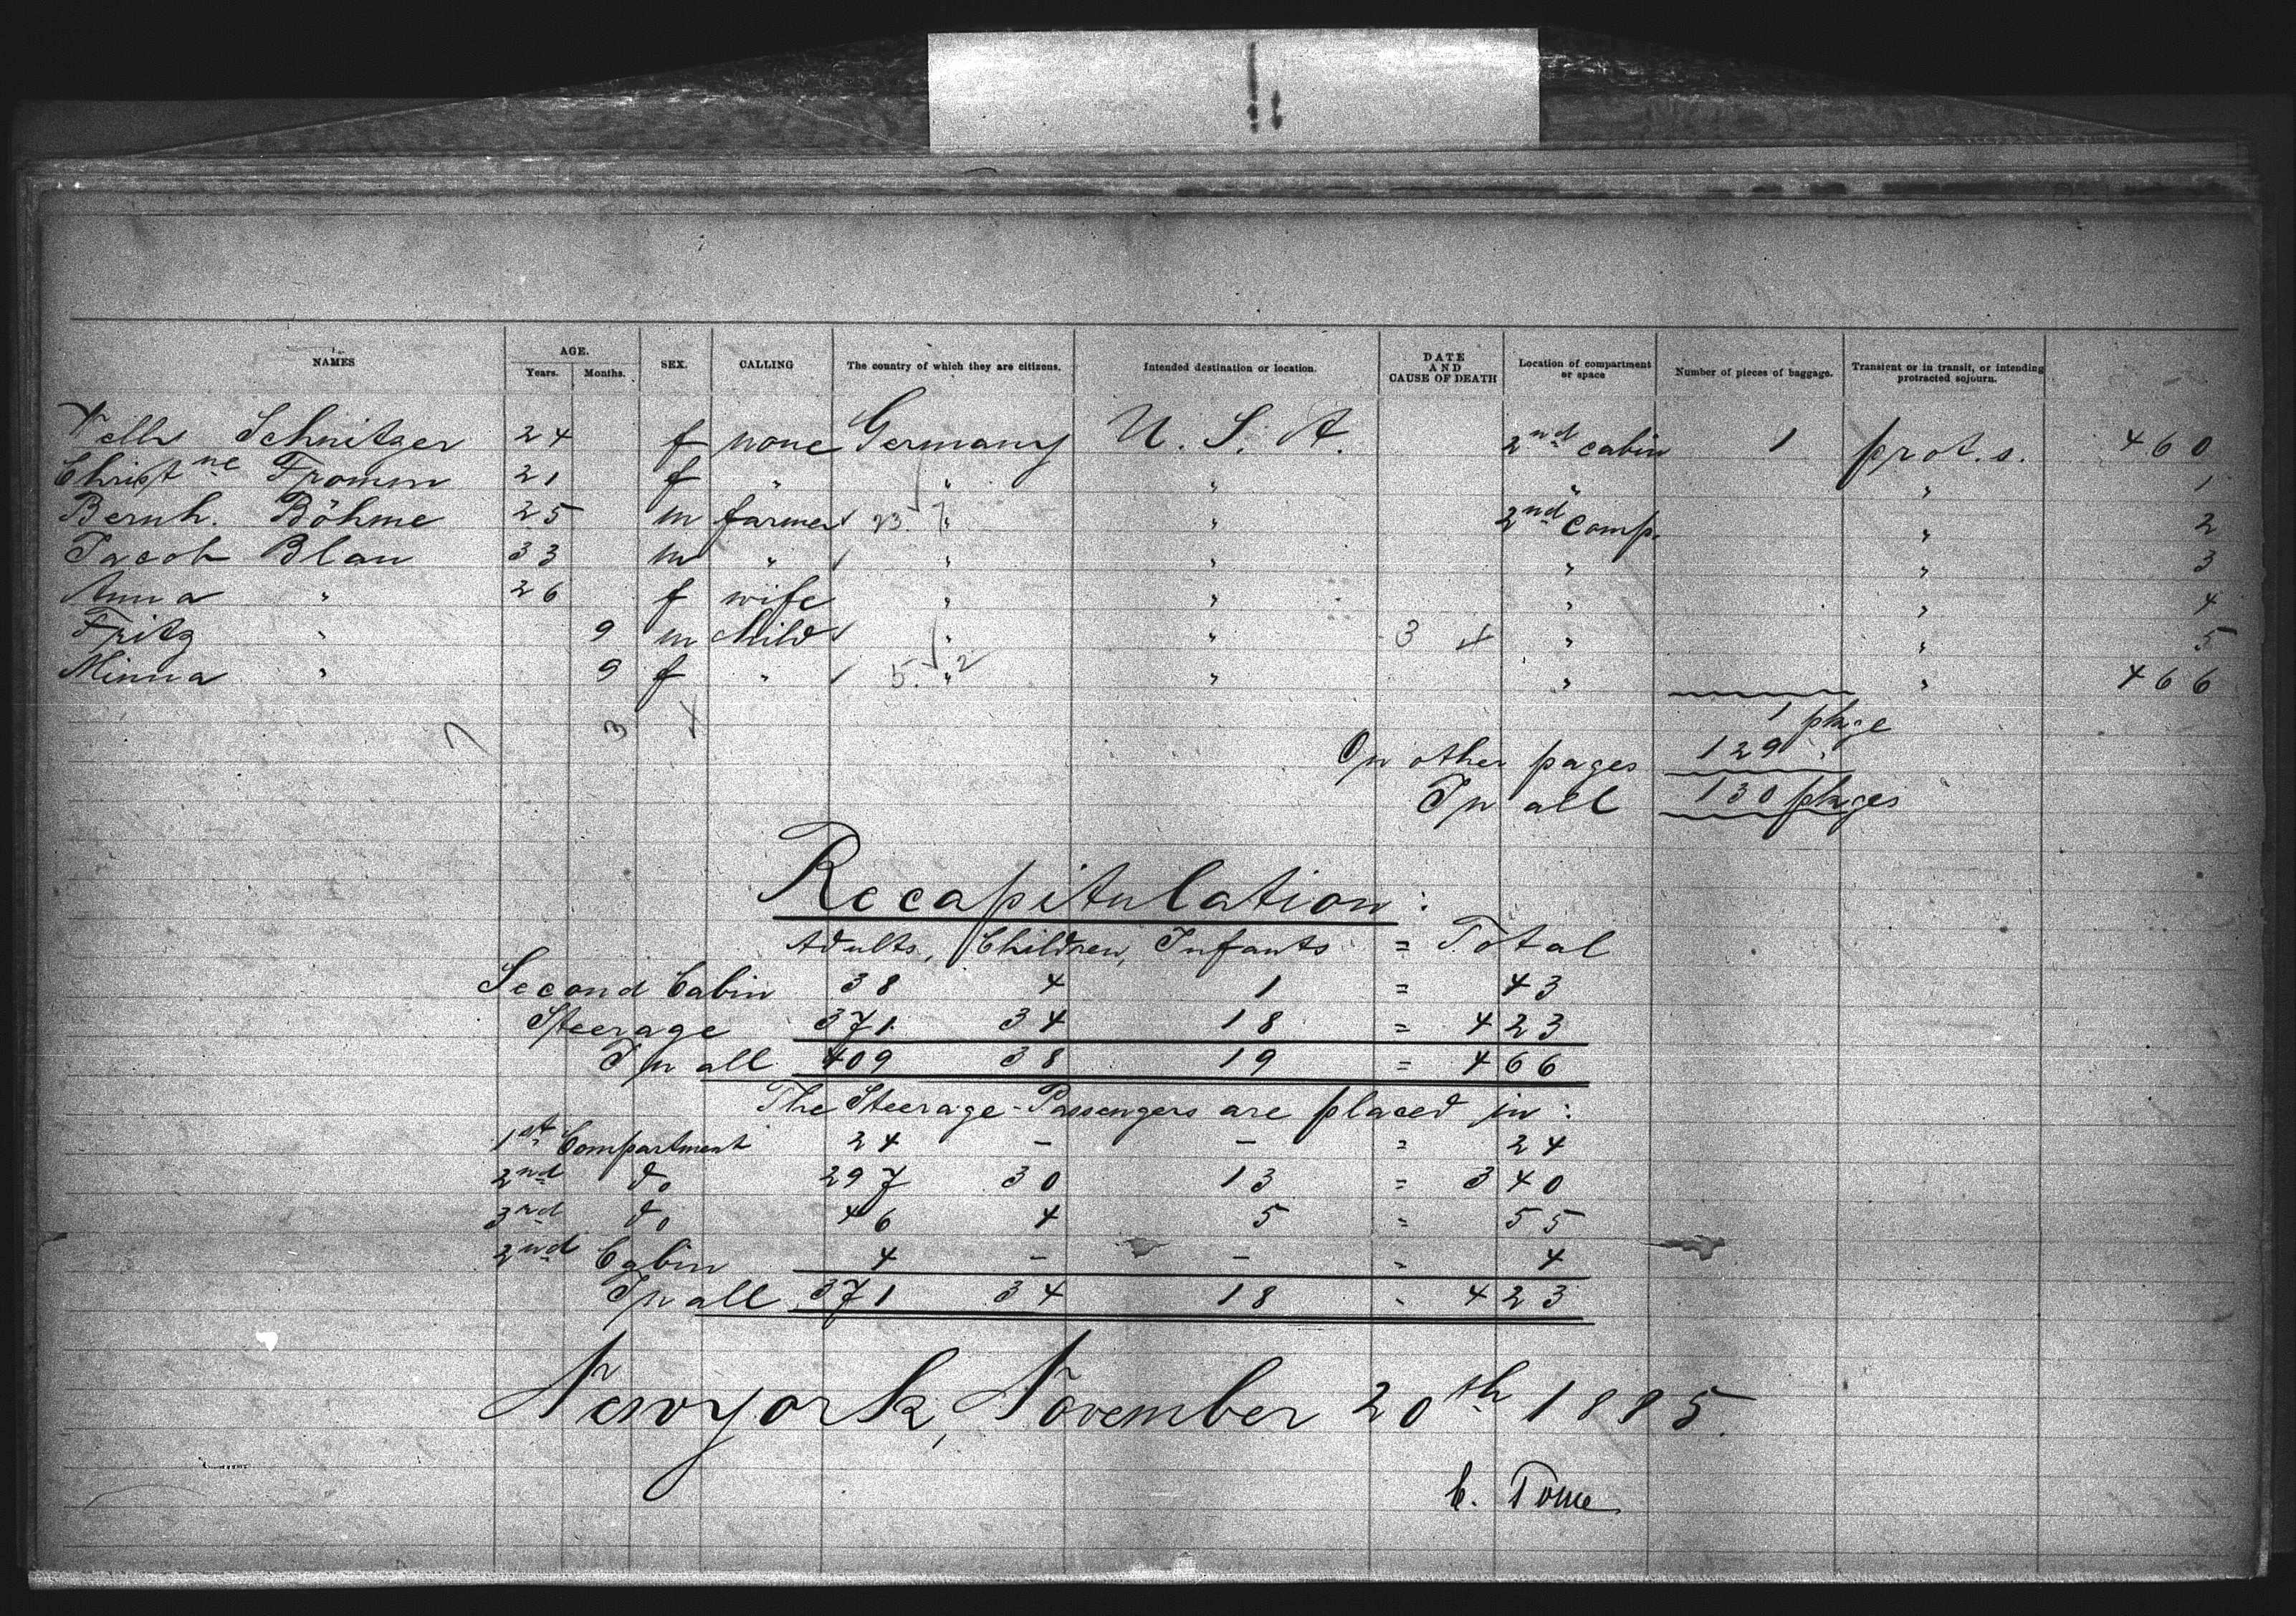 NAMES AGE. Years. Months. SEX. CALLING The country of which they are citizens. Intended destination or location. DATE AND CAUSE OF DEATH Location of compartment or space Number of pieces of baggage. Transient or in transit, or intending protracted sojourn.
Schnitger 24 f none Germany U. S. A. 2nd cabin 1 prot. s. 460
Christne Fromm 21 f " " " " " 1
Bernh. Böhme 25 m farmer 23 " " 2nd Comp. " 2
Jacob Blau 33 m " " " " " 3
Anna " 26 f wife " " " " 4
Fritz " 9 m child " " 3 4 " " 5
Minna " 9 f " 5. " 2 " " " 466
7 3 4
1 pkge
On other pages 129 "
In all 130 pkges
Recapitulation:
Adults, Children, Infants = Total
Second Cabin 38 4 1 = 43
Steerage 371 34 18 = 423
In all 409 38 19 = 466
The Steerage-Passengers are placed in:
1st Compartment 24 - - = 24
2nd do 297 30 13 = 340
3rd do 46 4 5 = 55
2nd Cabin 4 - - = 4
In all 371 34 18 = 423
Newyork, November 20th 1885.